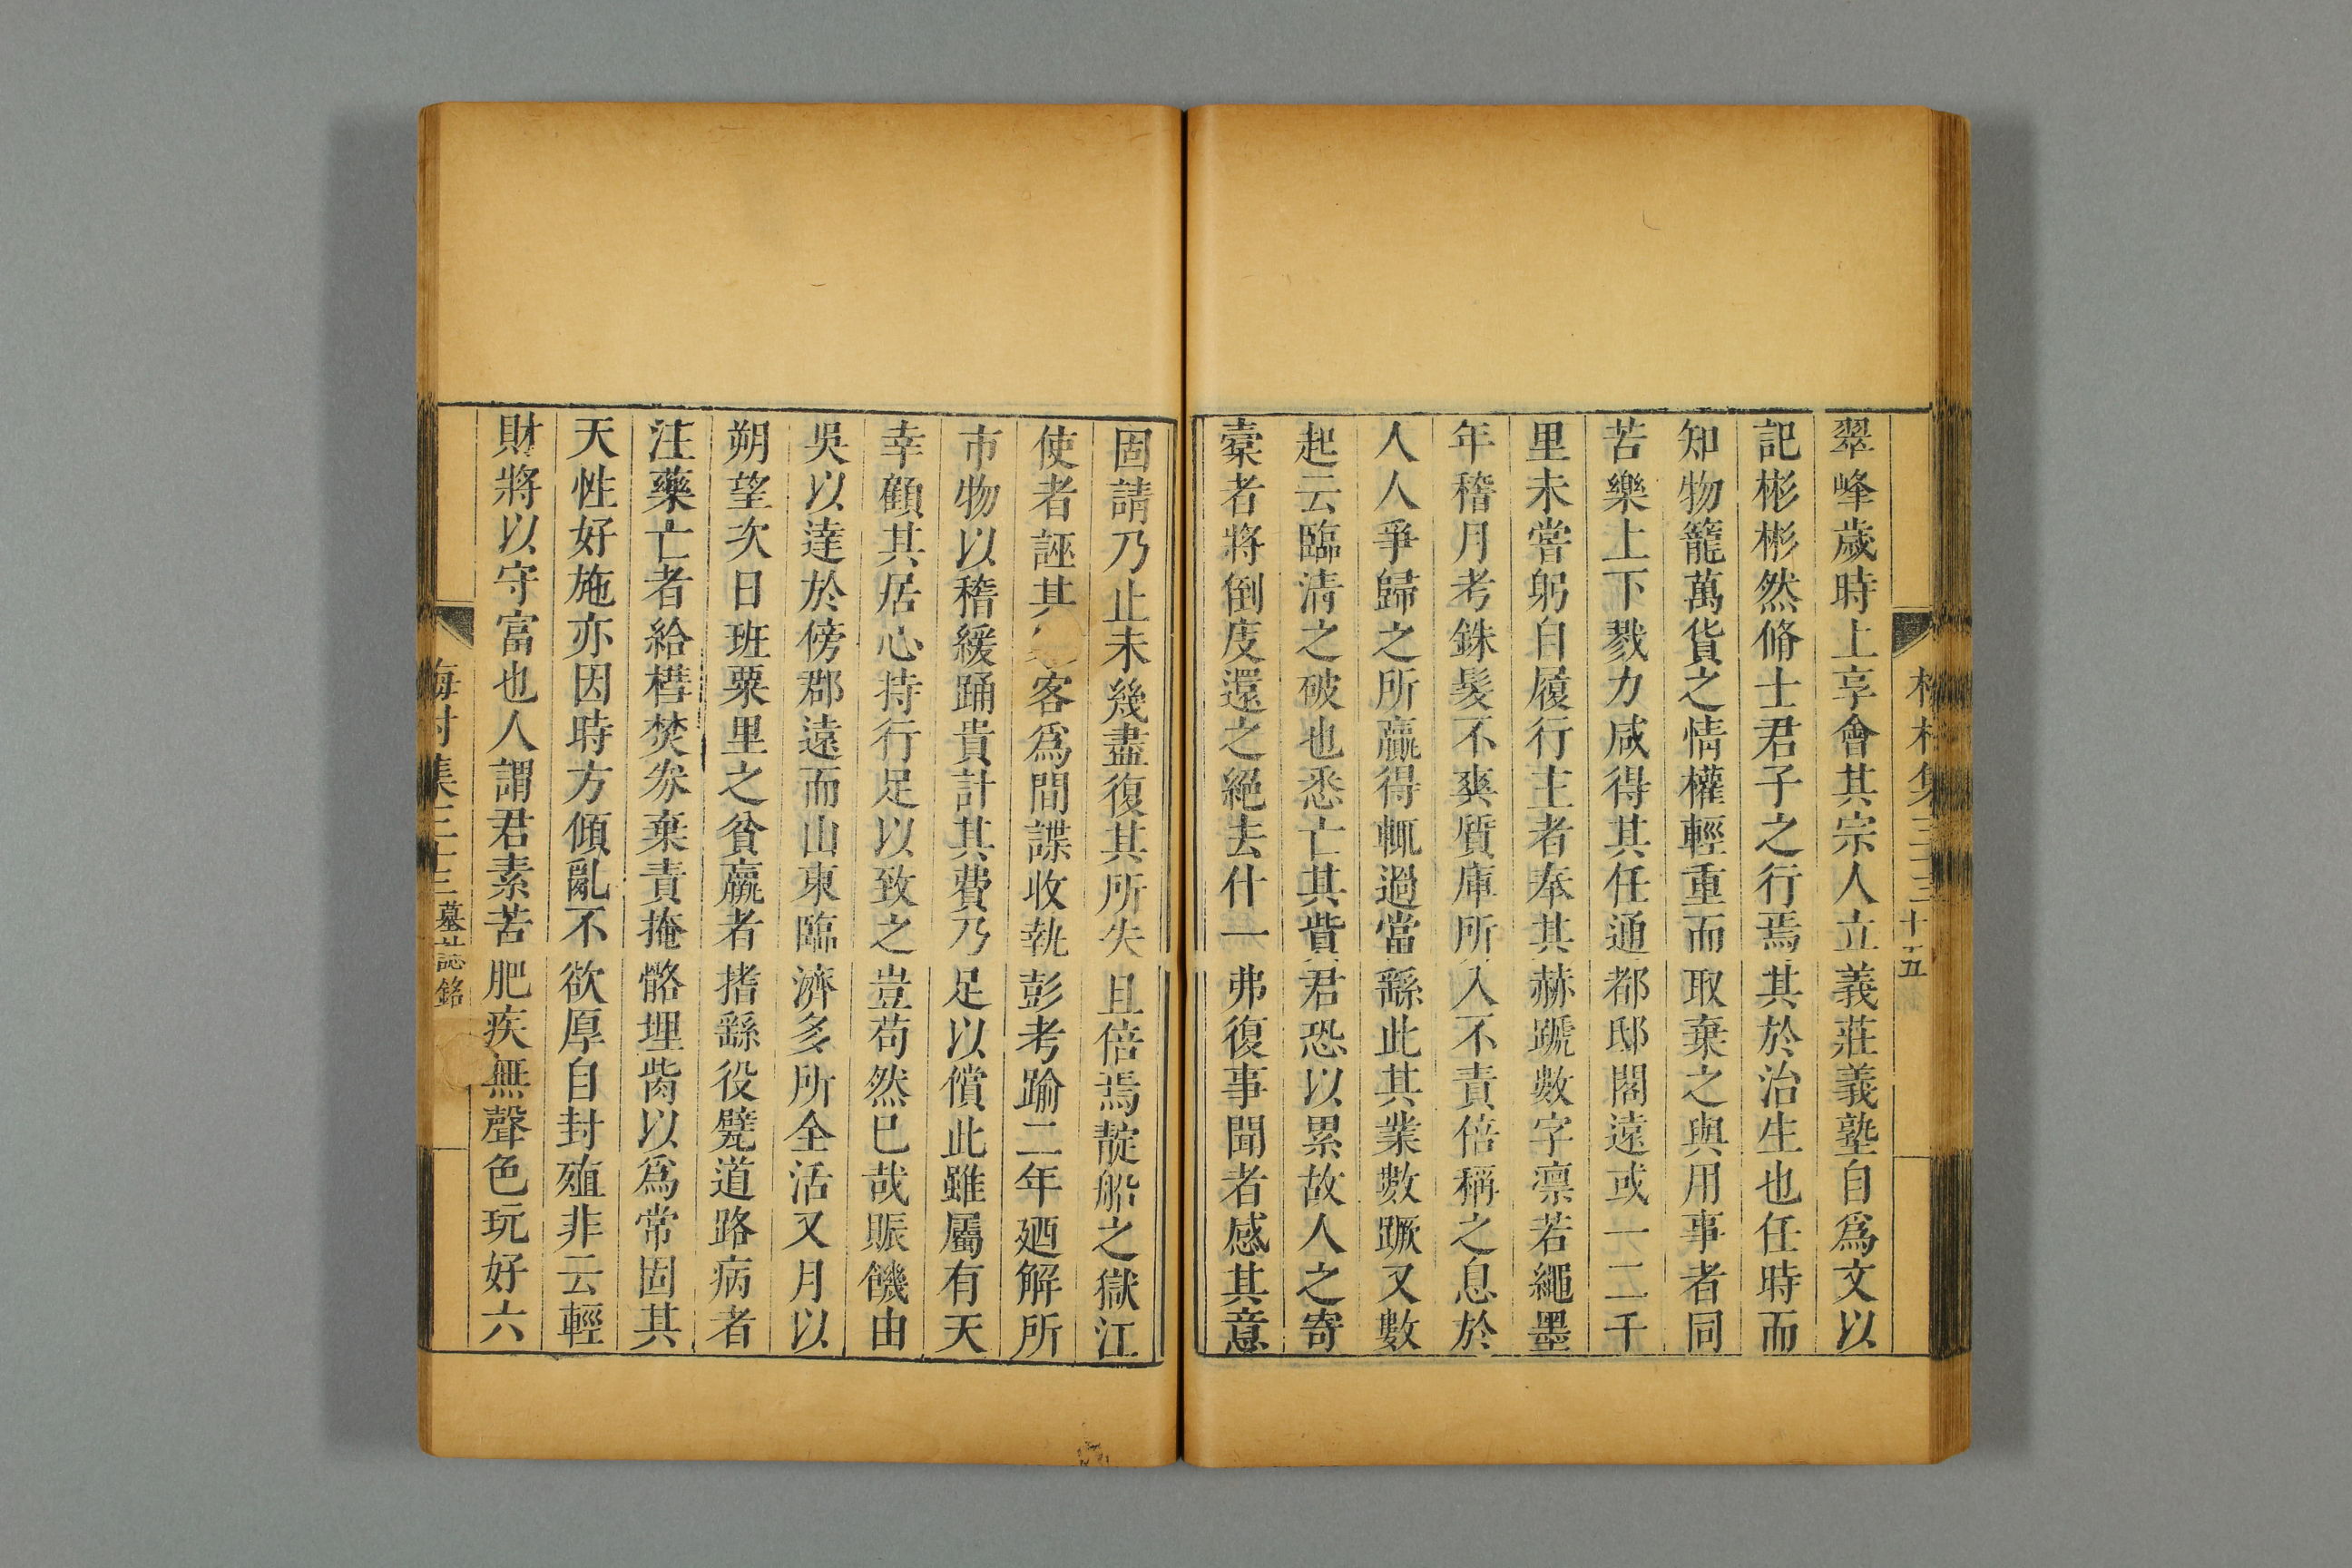 翠峰歲時上享會其宗人立義莊義塾自爲文以
記彬彬然脩士君子之行焉其於治生也任時而
知物籠萬貨之情權輕重而取棄之與用事者同
苦樂上下戮力咸得其任通都邸閣遠或一二千
里未嘗躬自履行主者奉其赫蹏數字凛若繩墨
年稽月考銖髮不爽質庫所入不責倍稱之息於
人人爭歸之所贏得輒過當繇此其業數蹶又數
起云臨清之破也悉亡其貲君恐以累故人之寄
橐者將倒庋還之絕去什一弗復事聞者感其意
固請乃止未幾盡復其所失且倍焉艤船之獄江
使者誣其客爲間諜收執彭考踰二年廼解所
市物以稽緩踊貴計其費乃足以償此雖屬有天
幸顧其居心持行足以致之豈苟然已哉賑饑由
吳以達於傍郡遠而山東臨濟多所全活又月以
朔望次日班粟里之貧羸者揞繇役甓道路病者
注藥亡者給槥焚券棄責掩骼埋胔以爲常固其
天性好施亦因時方傾亂不欲厚自封殖非云輕
財將以守富也人謂君素苦肥疾無聲色玩好六
梅村集三十三墓誌銘
十五